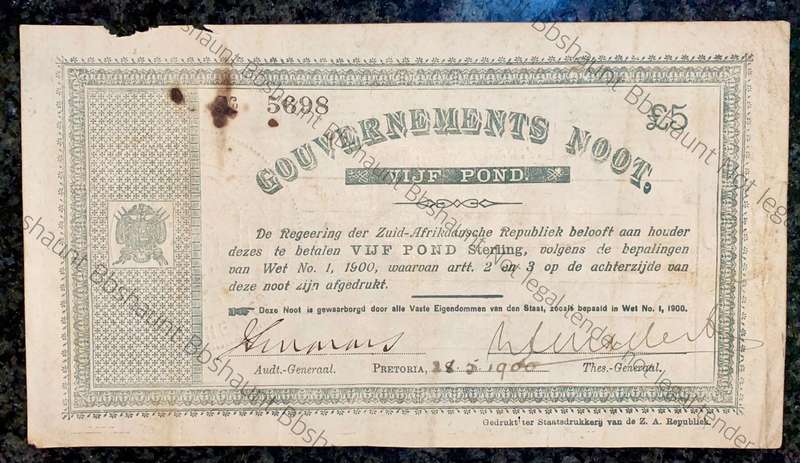 № 5698
£5
GOUVERNEMENTS NOOT.
VIJF POND.
De Regeering der Zuid-Afrikaansche Republiek belooft aan houder
dezes te betalen VIJF POND Sterling, volgens de bepalingen
van Wet No. 1, 1900, waarvan artt. 2 en 3 op de achterzijde van
deze noot zijn afgedrukt.
Deze Noot is gewaarborgd door alle Vaste Eigendommen van den Staat, zooals bepaald in Wet No. 1, 1900.
Audt.-Generaal. PRETORIA, 28.5.1900 Thes.-Generaal.
Gedrukt ter Staatsdrukkerij van de Z. A. Republiek.
Bbshaunt Bbshaunt Bbshaunt Not legal tender
Bbshaunt Bbshaunt Bbshaunt Not legal tender